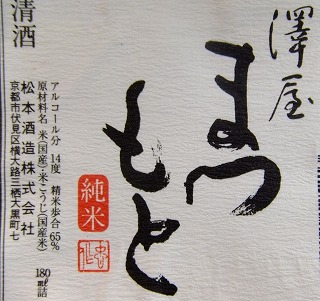 澤屋
まつ
もと
純米
清酒
アルコール分 14度 精米歩合 65%
原材料名 米(国産)・米こうじ(国産米)
松本酒造株式会社
京都市伏見区横大路三栖大黒町七
180ml詰